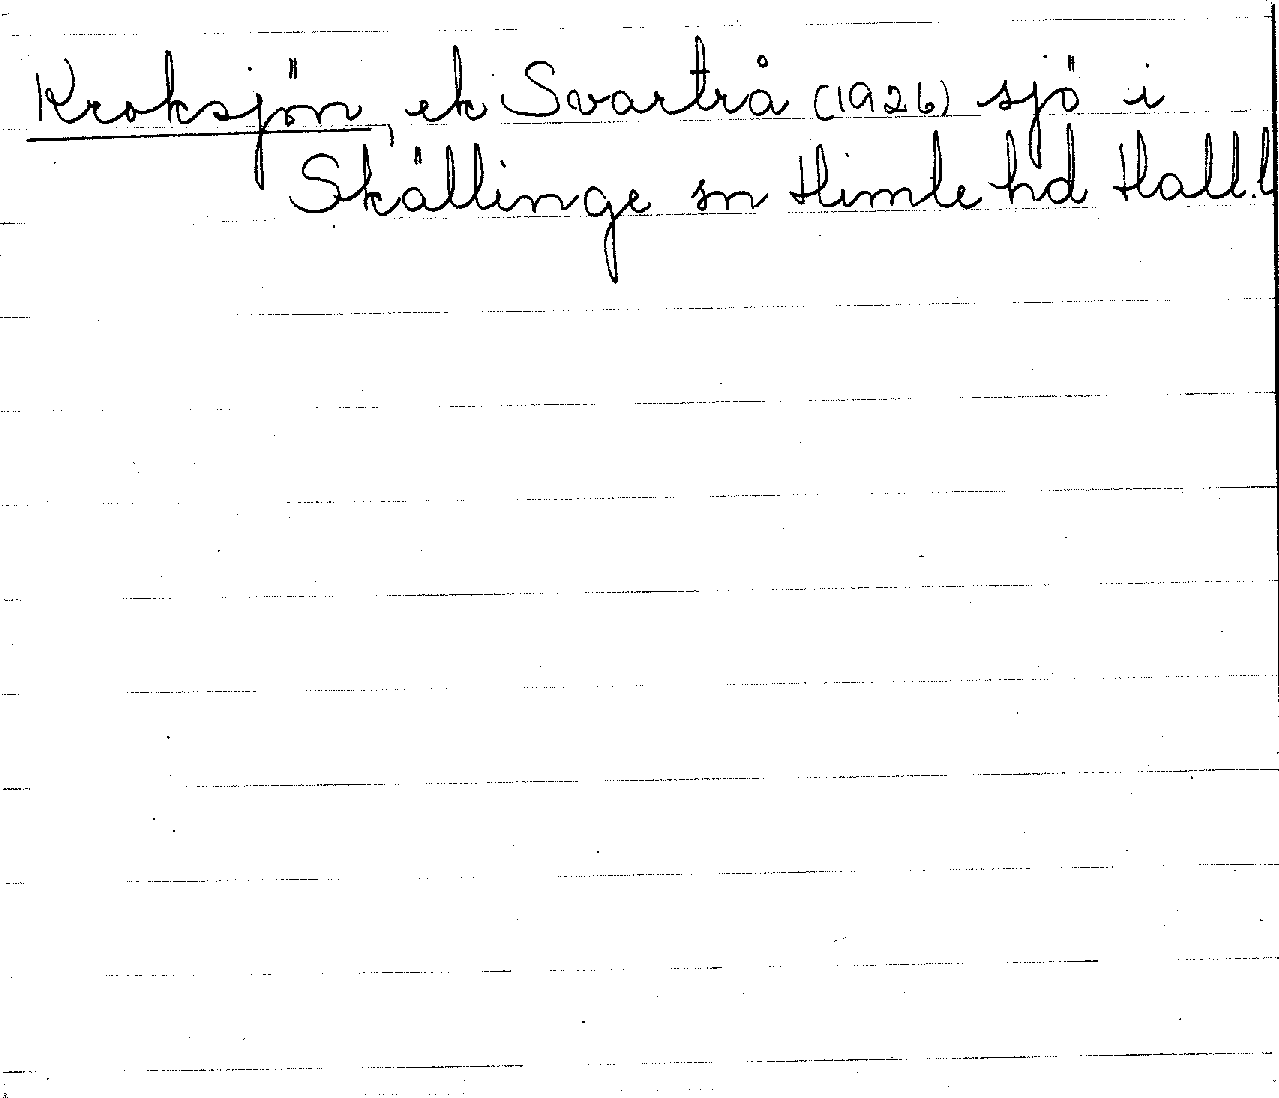 Kroksjön, ek Svartrå (1926) sjö i
Skällinge sn Himle hd Hall.l